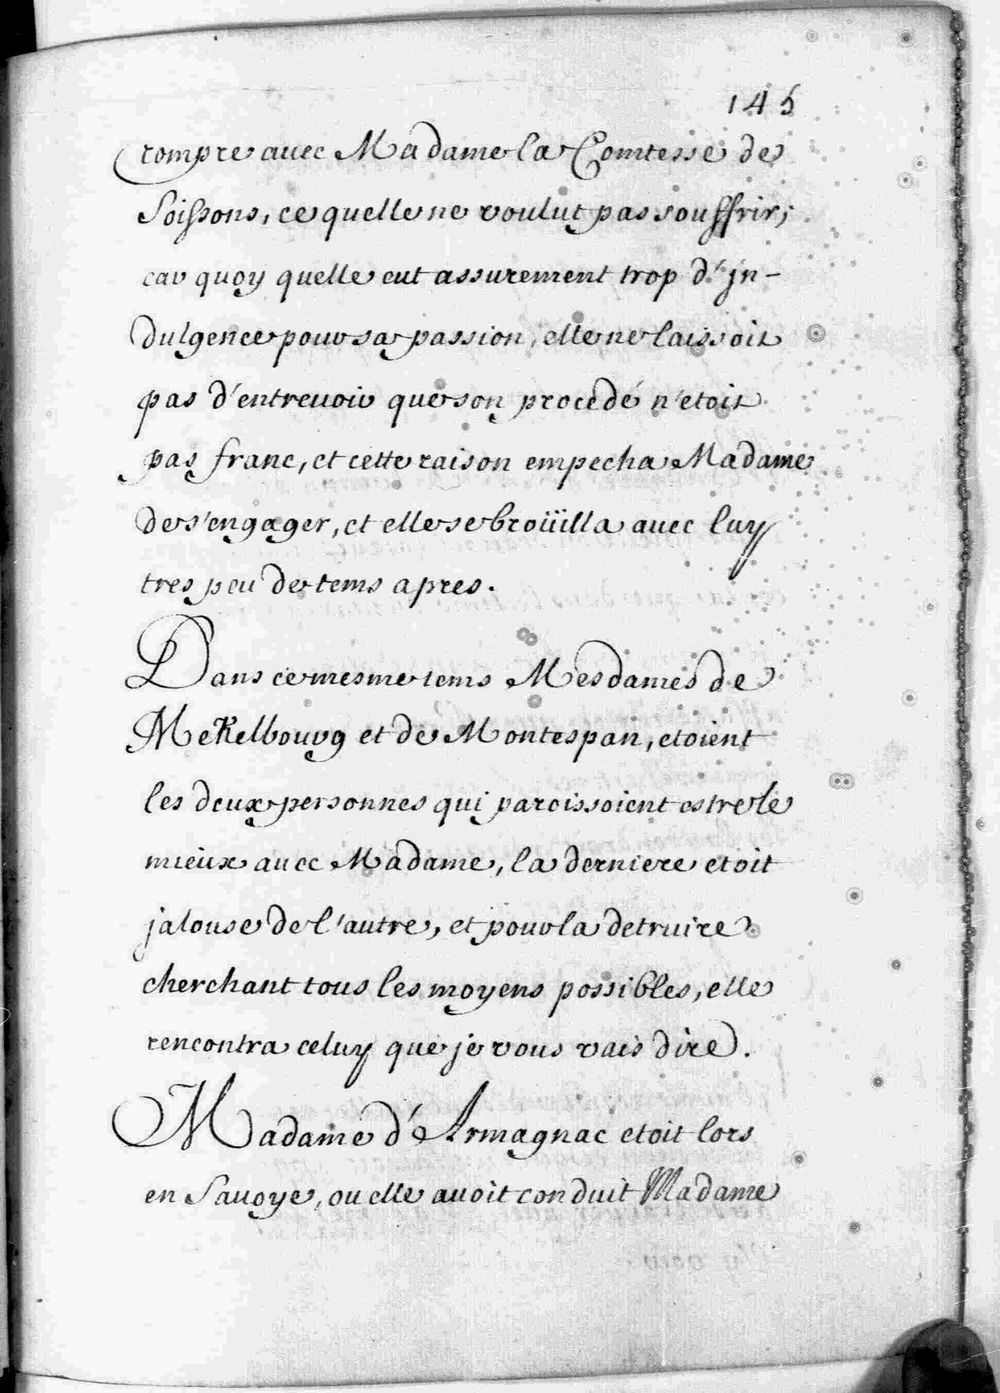 145
rompre avec Madame la Comtesse de
Soissons, ce quelle ne voulut pas souffrir;
car quoy quelle eut assurement trop d'jn-
dulgence pour sa passion, elle ne laissoit
pas d'entrevoir que son procedé n'etoit
pas franc, et cette raison empecha Madame
de s'engager, et elle se broüilla avec luy
tres peu de tems apres.
Dans ce mesme tems Mesdames de
Mekelbourg et de Montespan, etoient
les deux personnes qui paroissoient estre le
mieux avec Madame, la derniere etoit
jalouse de l'autre, et pour la detruire
cherchant tous les moyens possibles, elle
rencontra celuy que je vous vais dire.
Madame d'Armagnac etoit lors
en Savoye, ou elle avoit conduit Madame